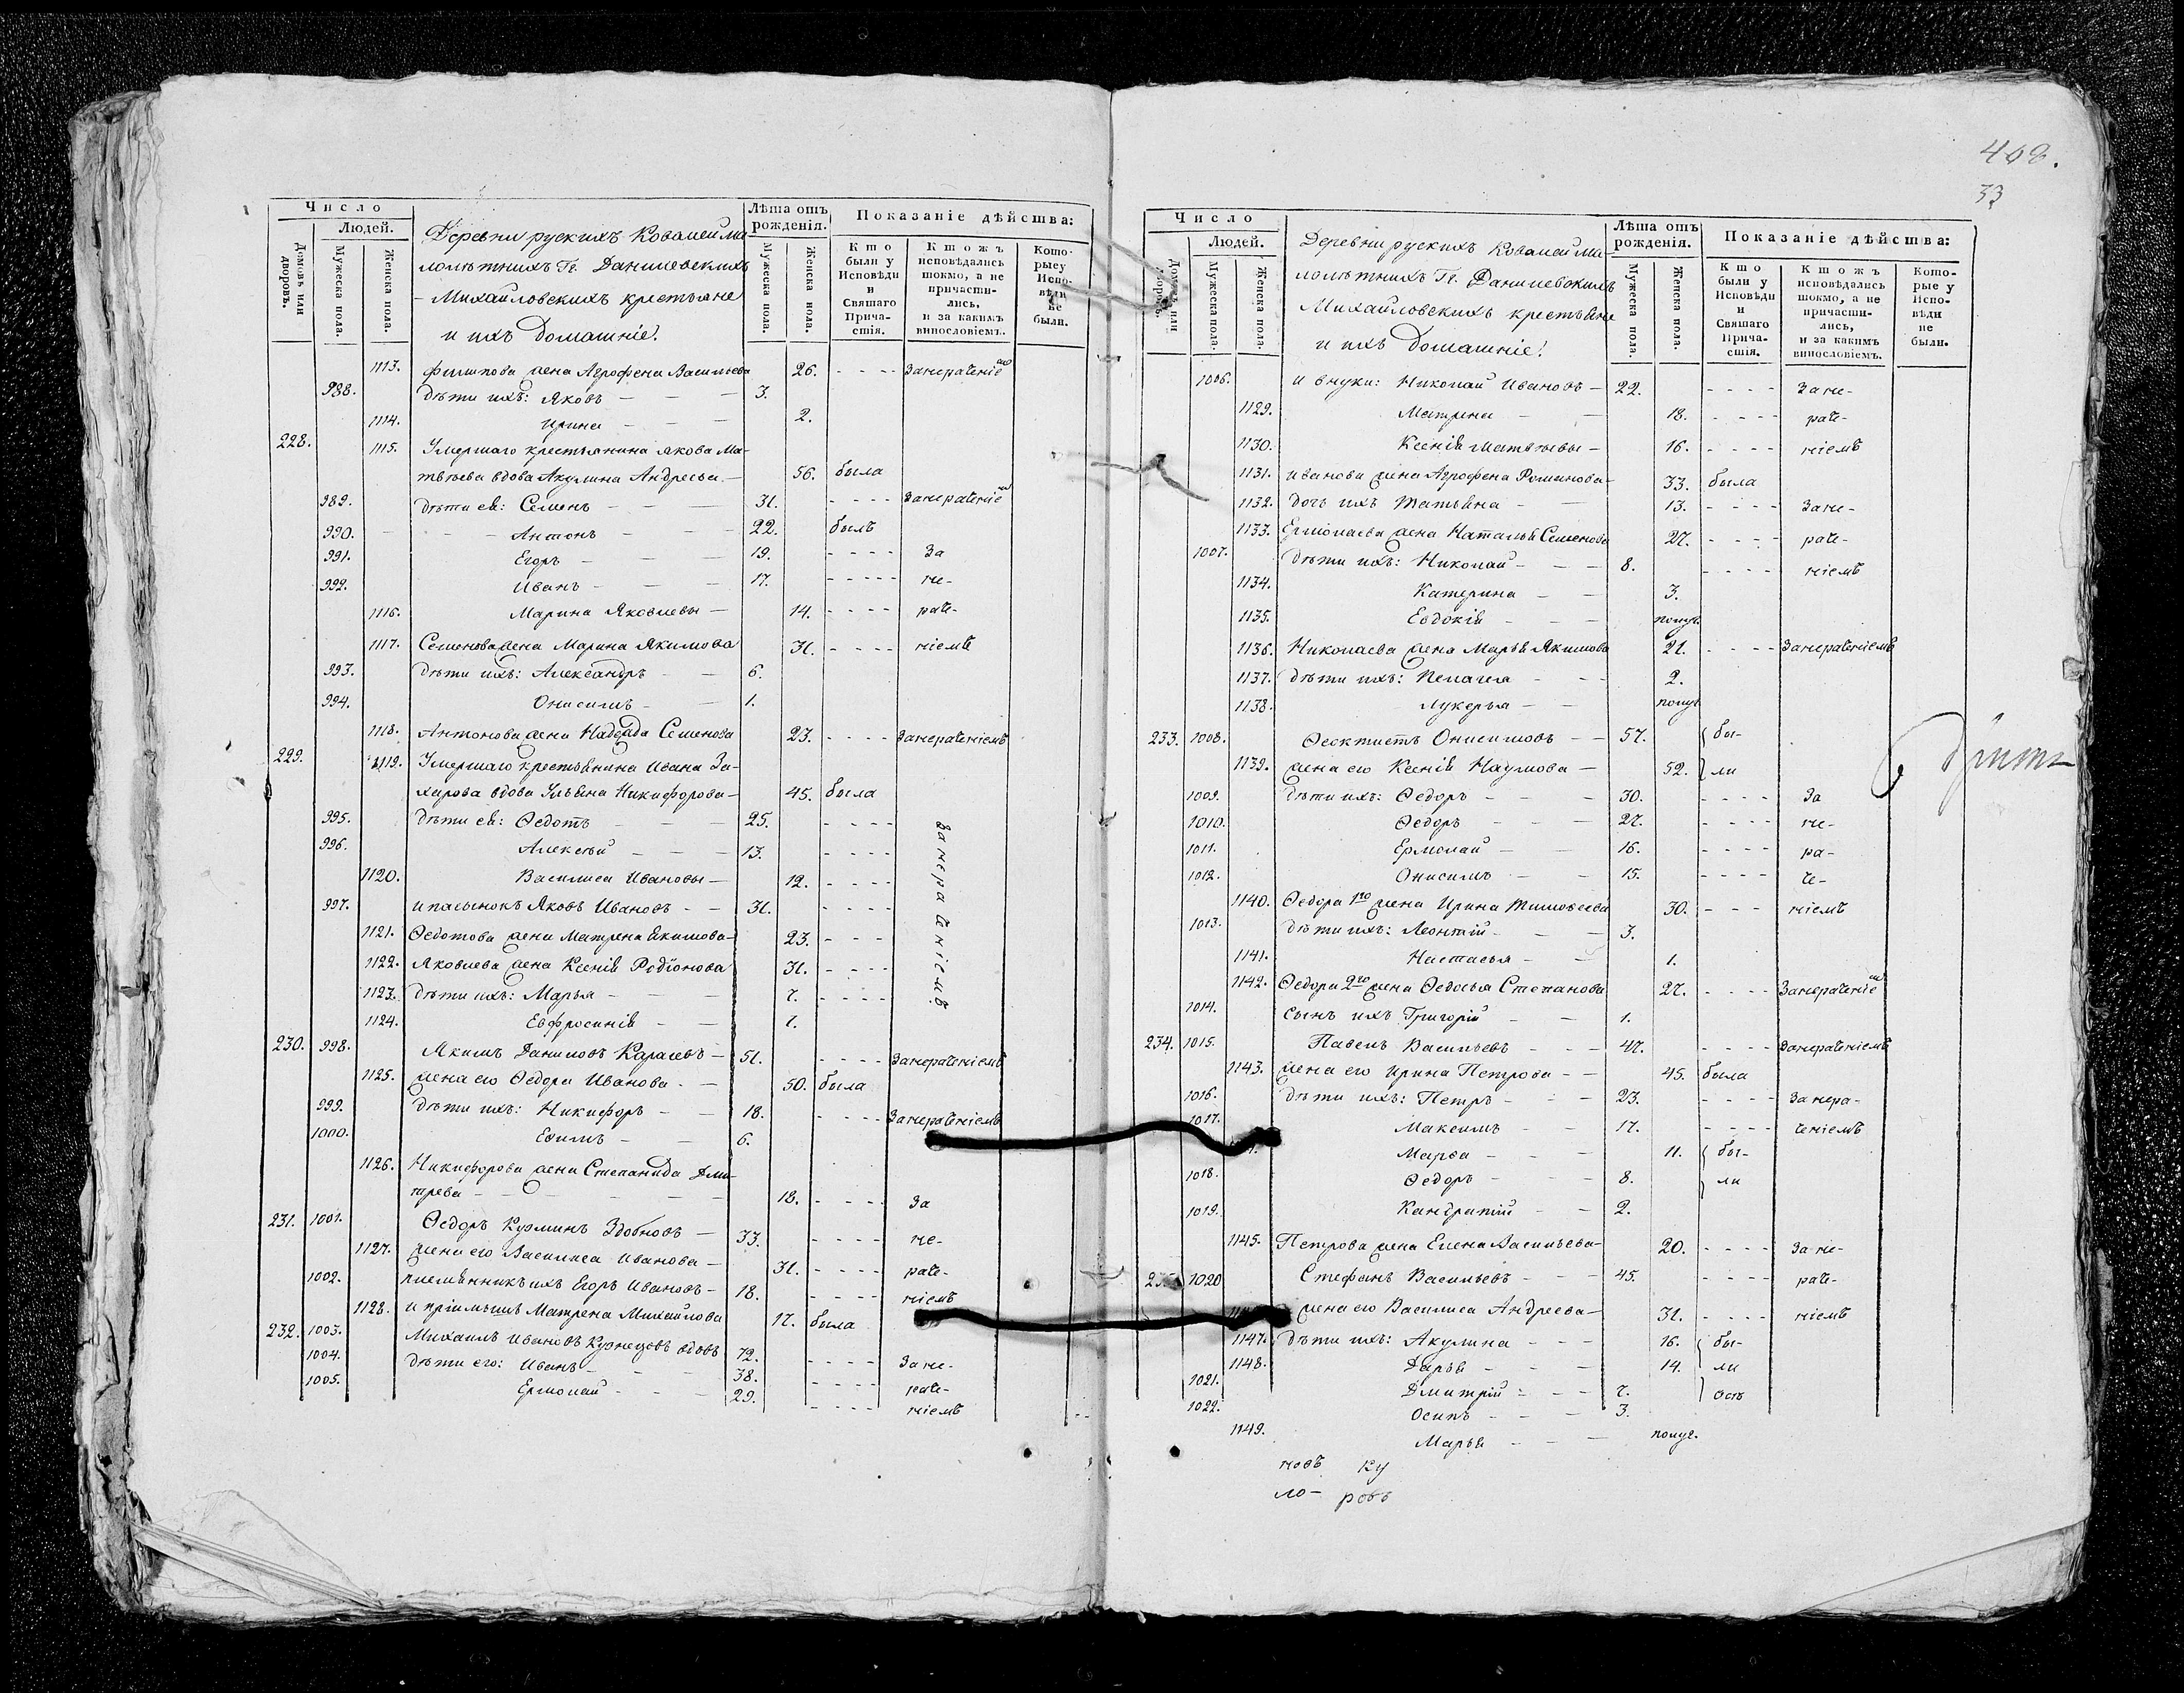 Число
Людей.
Домовъ или дворовъ.
Мужеска пола.
Женска пола.
Деревни рускихъ Ковалей ма-
лолѣтнихъ Гг. Данилевскихъ
- Михайловскихъ крестьяне
и ихъ домашніе:
Лѣта отъ рожденія.
Мужеска пола.
Женска пола.
Показаніе дѣйства:
Кто были у Исповѣди и Святаго Прича-стія.
Ктожъ исповѣдались токмо, а не причасти-лись, и за какимъ винословіемъ.
Кото-рые у Испо-вѣди не были.
1113. Филипова жена Агрофена Васильева 26. - - - - Занераченіе
988. дѣти ихъ: Яковъ — 3.
1114. Ирина — 2.
228. 1115. Умершаго крестьянина Якова Ма-
твѣева вдова Акулина Андреева — 56. была
989. дѣти ея: Семенъ — 31. - - - - Занераченіе
990. Антонъ — 22. былъ
991. Егоръ — 19. - - - - За
992. Иванъ — 17. - - - - не-
1116. Марина Яковлевы — 14. - - - - раче-
1117. Семенова жена Марина Якимова 31. - - - - ніемъ
993. дѣти ихъ: Александръ — 6.
994. Онисимъ — 1.
1118. Антонова жена Надежда Семенова 23. - - - - Занераченіемъ
229. 1119. Умершаго крестьянина Ивана За-
харова вдова Ульяна Никифорова — 45. была
995. дѣти ея: Ѳедотъ — 25. - - - - Занераченіемъ
996. Алексѣй — 13. - - - -
1120. Василиса Ивановы — 12. - - - -
997. и пасынокъ Яковъ Ивановъ — 31. - - - -
1121. Ѳедотова жена Матрена Якимова — 23. - - -
1122. Яковлева жена Ксенія Родіонова 31. - - - -
1123. дѣти ихъ: Марья — 7. - - - -
1124. Евфросинія — 1.
230. 998. Якимъ Даниловъ Карасевъ — 51. - - - - Занераченіемъ
1125. жена его Ѳедора Иванова — 50. была
999. дѣти ихъ: Никифоръ — 18. - - - - Занераченіемъ
1000. Еѳимъ — 6.
1126. Никифорова жена Степанида Дми-
трева — 18. - - - - За
231. 1001. Ѳедоръ Кузминъ Здобновъ — 33. - - - - не-
1127. жена его Василиса Иванова — 31. - - - - раче-
1002. племянникъ ихъ Егоръ Ивановъ — 18. - - - - ніемъ
1128. и пріимышъ Матрена Михайлова 17. была
232. 1003. Михаилъ Ивановъ Кузнецовъ вдовъ 72. - - - - Зане-
1004. дѣти его: Иванъ — 38. - - - - раче-
1005. Ермолай — 29. - - - - ніемъ
408.
33
Число
Людей.
Домовъ или дворовъ.
Мужеска пола.
Женска пола.
Деревни рускихъ Ковалей ма-
лолѣтнихъ Гг. Данилевскихъ
Михайловскихъ крестьяне
и ихъ домашніе:
Лѣта отъ рожденія.
Мужеска пола.
Женска пола.
Показаніе дѣйства:
Кто были у Исповѣди и Святаго Прича-стія.
Ктожъ исповѣдались токмо, а не причасти-лись, и за какимъ винословіемъ.
Кото-рые у Испо-вѣди не были.
1006. и внуки: Николай Ивановъ — 22. - - - - Зане-
1129. Матрена — 18. - - - - раче-
1130. Ксенія Матвѣевы — 16. - - - - ніемъ
1131. Иванова жена Агрофена Романова — 33. была
1132. дочь ихъ Татьяна — 13. - - - - Зане-
1133. Ермолаева жена Наталья Семенова 27. - - - - раче-
1007. дѣти ихъ: Николай — 8. - - - - ніемъ
1134. Катерина — 3.
1135. Евдокія — полуг.
1136. Николаева жена Марья Якимова 21. - - - - Занераченіемъ
1137. дѣти ихъ: Пелагея — 2.
1138. Лукерья — полуг.
233. 1008. Ѳеоктистъ Онисимовъ — 57. бы-
1139. жена его Ксенія Наумова — 52. ли
1009. дѣти ихъ: Ѳедоръ — 30. - - - - За
1010. Ѳедоръ — 27. - - - - не-
1011. Ермолай — 16. - - - - ра-
1012. Онисимъ — 15. - - - - че-
1140. Ѳедора 1го жена Ирина Тимоѳеева 30. - - - ніемъ
1013. дѣти ихъ: Леонтій — 3.
1141. Настасья — 1.
1142. Ѳедора 2го жена Ѳедосья Степанова 27. - - - - Занераченіе
1014. сынъ ихъ Григорій — 1.
234. 1015. Павелъ Васильевъ — 47. - - - - Занераченіемъ
1143. жена его Ирина Петрова — 45. была
1016. дѣти ихъ: Петръ — 23. - - - - Занера-
1017. Максимъ — 17. - - - - ченіемъ
Марѳа — 11. бы-
1018. Ѳедоръ — 8. ли
1019. Кандратій — 2.
1145. Петрова жена Елена Васильева — 20. - - - - Зане-
1020 Стефанъ Васильевъ — 45. - - - - раче-
жена его Василиса Андреева — 31. - - - - ніемъ
1147. дѣти ихъ: Акулина — 16. бы-
1148. Дарья — 14. ли
1021. Дмитрій — 7.
1022. Осипъ — 3.
1149. Марья — полуг.
новъ ку
ло- ровъ